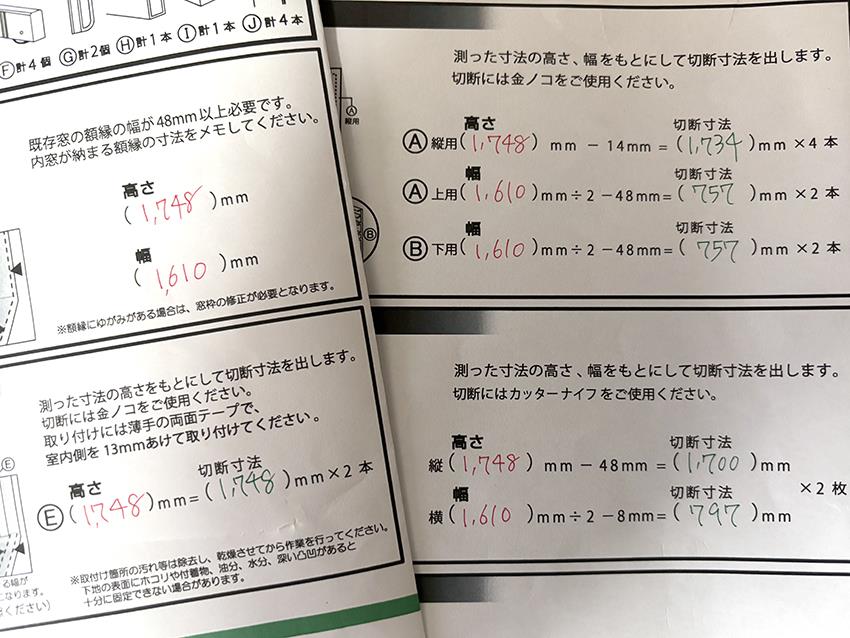 Ⓕ計4個 Ⓖ計2個 Ⓗ計1本 Ⓘ計1本 Ⓙ計4本
既存窓の額縁の幅が48mm以上必要です。
内窓が納まる額縁の寸法をメモしてください。
高さ
(1,748)mm
幅
(1,610)mm
※額縁にゆがみがある場合は、窓枠の修正が必要となります。
測った寸法の高さをもとにして切断寸法を出します。
切断には金ノコをご使用ください。
取り付けには薄手の両面テープで、
室内側を13mmあけて取り付けてください。
Ⓔ
高さ 切断寸法
Ⓔ(1,748)mm=(1,748)mm×2本
※取付け箇所の汚れ等は除去し、乾燥させてから作業を行ってください。
下地の表面にホコリや付着物、油分、水分、深い凸凹があると
十分に固定できない場合があります。
る幅が
になります。
ください)
測った寸法の高さ、幅をもとにして切断寸法を出します。
切断には金ノコをご使用ください。
Ⓐ
縦用
高さ 切断寸法
Ⓐ縦用(1,748) mm − 14mm =(1,734)mm ×4本
幅 切断寸法
Ⓐ上用(1,610)mm÷2−48mm=(757)mm ×2本
幅 切断寸法
Ⓑ下用(1,610)mm÷2−48mm=(757)mm ×2本
Ⓑ
測った寸法の高さ、幅をもとにして切断寸法を出します。
切断にはカッターナイフをご使用ください。
高さ 切断寸法
縦(1,748) mm − 48mm =(1,700)mm
×2枚
幅 切断寸法
横(1,610)mm÷2−8mm=(797)mm